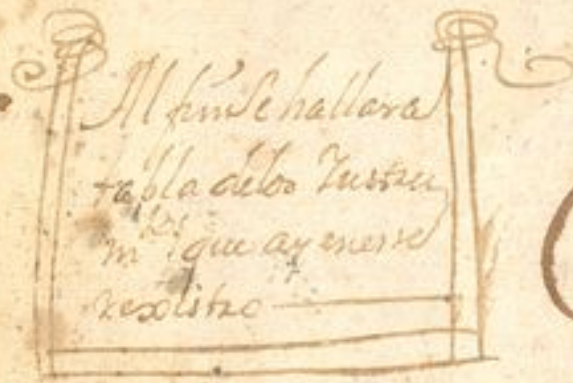 Al fin Se hallara
tabla delos Instru
mtos que ay eneste
rexistro